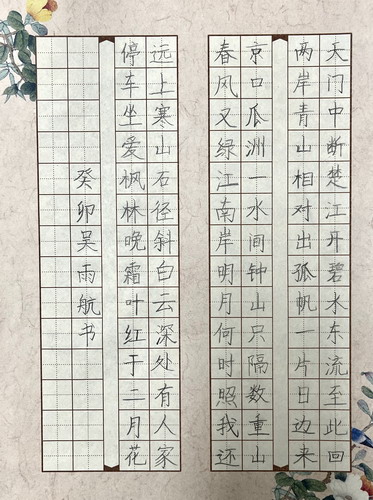 天门中断楚江开碧水东流至此回
两岸青山相对出孤帆一片日边来
京口瓜洲一水间钟山只隔数重山
春风又绿江南岸明月何时照我还
远上寒山石径斜白云深处有人家
停车坐爱枫林晚霜叶红于二月花
癸卯吴雨航书